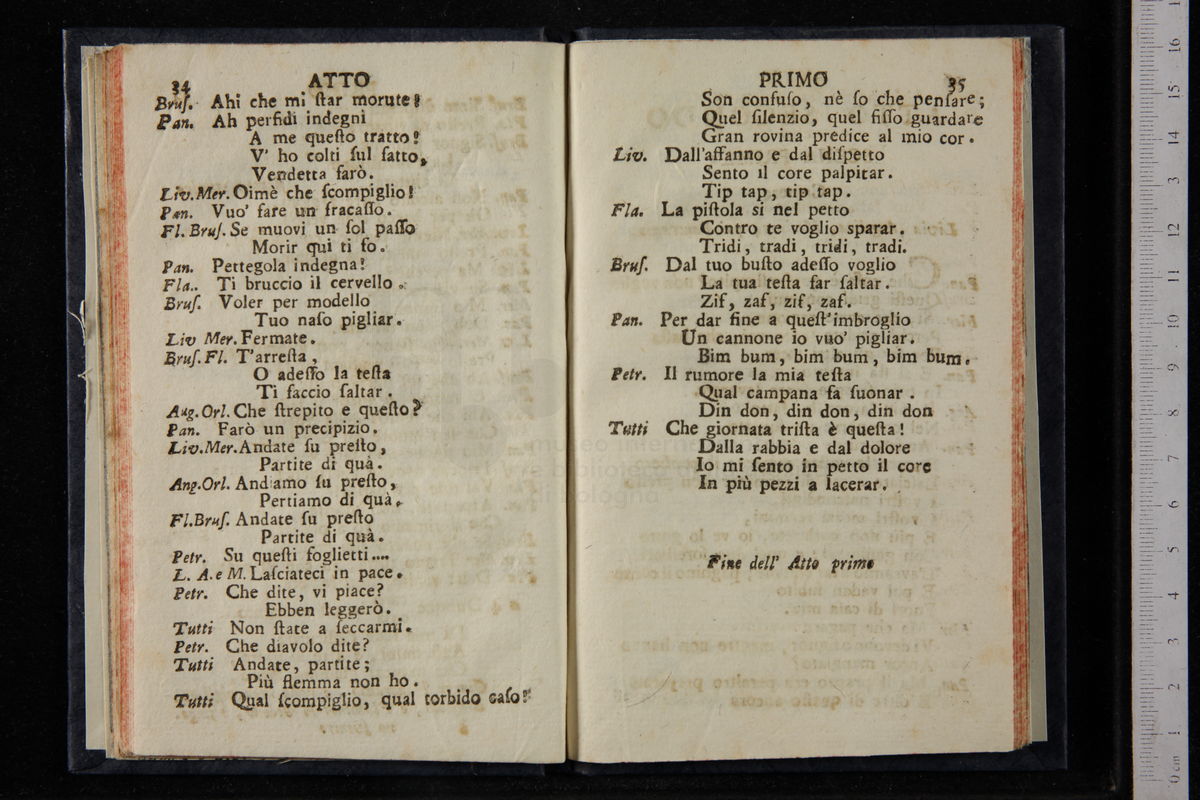 34 ATTO
Bruſ. Ahi che mi ſtar morute!
Pan. Ah perfidi indegni
A me queſto tratto!
V' ho colti ſul fatto,
Vendetta farò.
Liv. Mer. Oimè che ſcompiglio!
Pan. Vuo' fare un fracaſſo.
Fl. Bruſ. Se muovi un ſol paſſo
Morir qui ti fo.
Pan. Pettegola indegna!
Fla.. Ti bruccio il cervello.
Bruſ. Voler per modello
Tuo naſo pigliar.
Liv Mer. Fermate.
Bruſ. Fl. T'arreſta,
O adeſſo la teſta
Ti faccio ſaltar.
Aug. Orl. Che ſtrepito e queſto?
Pan. Farò un precipizio.
Liv. Mer. Andate ſu preſto,
Partite di quà.
Ang. Orl. Andiamo ſu preſto,
Pertiamo di quà.
Fl. Bruſ. Andate ſu preſto
Partite di quà.
Petr. Su queſti foglietti....
L. A. e M. Laſciateci in pace.
Petr. Che dite, vi piace?
Ebben leggerò.
Tutti Non ſtate a ſeccarmi.
Petr. Che diavolo dite?
Tutti Andate, partite;
Più flemma non ho.
Tutti Qual ſcompiglio, qual torbido caſo!
PRIMO 35
Son confuſo, nè ſo che penſare;
Quel ſilenzio, quel fiſſo guardare
Gran rovina predice al mio cor.
Liv. Dall'affanno e dal diſpetto
Sento il core palpitar.
Tip tap, tip tap.
Fla. La piſtola si nel petto
Contro te voglio sparar.
Tridi, tradi, tridi, tradi.
Bruſ. Dal tuo buſto adeſſo voglio
La tua teſta far ſaltar.
Zif, zaf, zif, zaf.
Pan. Per dar fine a queſt'imbroglio
Un cannone io vuo' pigliar.
Bim bum, bim bum, bim bum.
Petr. Il rumore la mia teſta
Qual campana fa ſuonar.
Din don, din don, din don
Tutti Che giornata triſta è queſta!
Dalla rabbia e dal dolore
Io mi ſento in petto il core
In più pezzi a lacerar.
Fine dell' Atto primo
0 cm 1 2 3 4 5 6 7 8 9 10 11 12 13 14 15 16